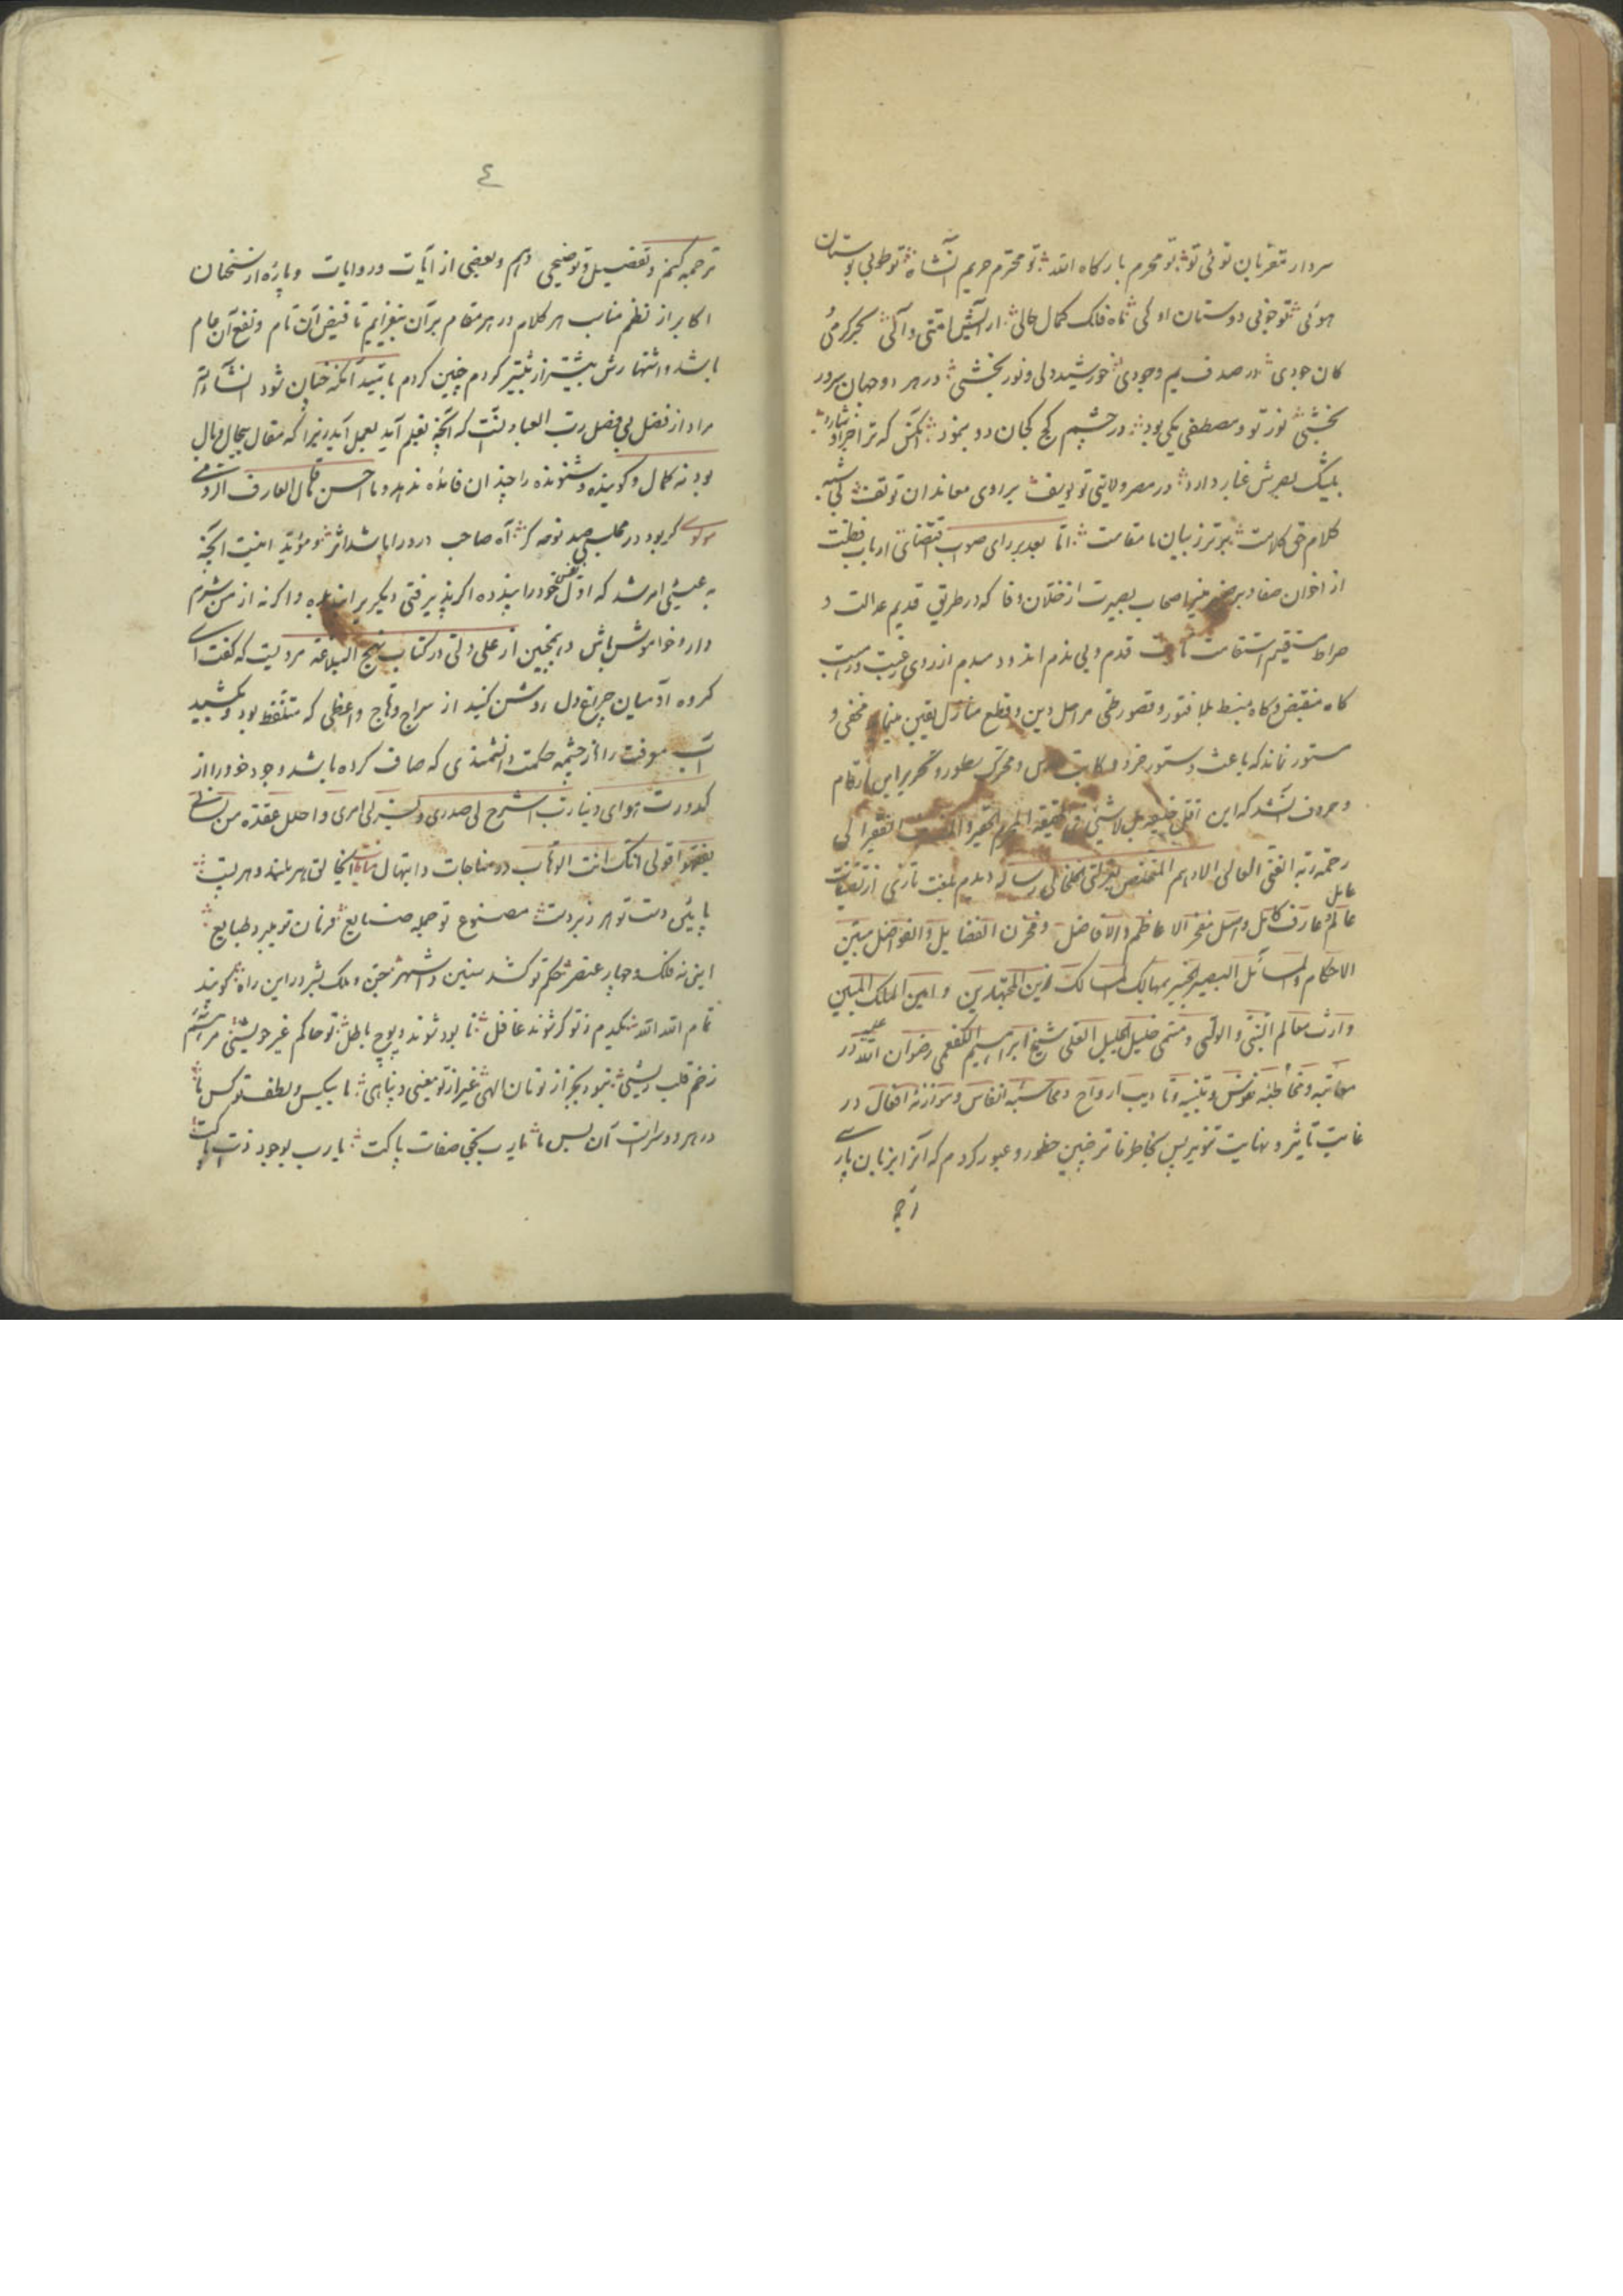 سردار مقربان توئی تو تو محرم بارگاه الله تو محترم حریم آنشاه تو طوبی بوستان
هوئی تو خوبی دوستان اوئی ماه فلک کمال حالی آرایش امتی و آلی بحر کرمی
کان جودی در صدف یم وجودی خورشید دلی و نور بخشی در هر دو جهان سرور
بخشی نور تو و مصطفی یکی بود در چشم کج کجان دو بنمود آنکس که ترا جدا شمارد
بیشک بصرش غبار دارد در مصر ولایتی تو یوسف بر اوی معاندان تو تف بی شبه
کلام حق کلامت برتر ز بیان ما مقامت اما بعد بر رای صواب اقتضای ارباب فطنت
از اخوان صفا و بر ضمیر منیر اصحاب بصیرت از خلان وفا که در طریق قدیم عدالت و
صراط مستقیم استقامت ثابت قدم و بی ندم اند و دمبدم از روی رغبت و رهبت
گاه منقبض و گاه منبسط بلا فتور و قصور طی مراحل دین و قطع منازل یقین مینمایند مخفی و
مستور نماند که باعث دستور خرد و کتابت و محرک سطور و تحریر این ارقام
و حروف آنشد که این اقل خلیقه بل لاشیء فی الحقیقه المجرم الحقیر و الفقیر الی
رحمة ربه الغنی العالی الادهم المتخلص بعزلتی الخلخالی رساله دیدم بلغت تازی از تصنیفات
عالم عامل و عارف کامل واصل مفخر الاعاظم و الافاضل و مخزن الفضایل و الفواضل مبین
الاحکام و المسائل البصیر الخبیر بمهالک المسالک زین المجتهدین و امین الملک المبین
وارث معالم النبی و الولی و سمی خلیل الجلیل العلی شیخ ابراهیم الکفعمی رضوان الله علیه در
معاتبه و مخاطبه نفوس و تنبیه و تادیب ارواح و محاسبه انفاس و موازنه افعال در
غایت تاثیر و نهایت تنویر پس بخاطر فاتر چنین خطور و عبور کردم که آنرا بزبان پارسی
ترجمه
٤
ترجمه کنم و تفصیل و توضیحی دهم و بعضی از آیات و روایات و پاره از سخنان
اکابر از نظم مناسب هر کلام در هر مقام بر آن بیفزایم تا فیض آن تام و نفع آن عام
باشد و اشتهارش بیشتر از پیشتر کردم چنین کردم بامید آنکه چنان شود انشاء الله
مراد از فضل بی فضل رب العباد آنست که آنچه بقلم آید بعمل آید زیرا که مقال بیحال وبال
بود نه کمال و گوینده و شنونده را چندان فائده ندهد و ما احسن قال العارف الرومی
مولوی گر بود در مجلسی صد نوحه گر آه صاحب درد را باشد اثر و مؤید اینست آنچه
به عیسی امر شد که اول نفس خود را پند ده اگر پند پذیرفتی دیگر برا پند ده و اگر نه از من شرم
دار و خاموش باش و همچنین از علی ولی در کتاب نهج البلاغه مرویست که گفت ای
گروه آدمیان چراغ دل روشن کنید از سراج وهاج واعظی که متعظ بود و بکشید
آب معرفت را از چشمه حکمت دانشمندی که صاف کرده باشد وجود خود را از
کدورت هوای دنیا رب اشرح لی صدری و یسر لی امری و احلل عقدة من لسانی
یفقهوا قولی انک انت الوهاب در مناجات و ابتهال ای خالق هر بلند و هر پست
پائین دست تو هر زبردست مصنوع تو جمله صنایع فرمان تو میبرد طبایع
این نه فلک و چهار عنصر حکم تو کشد سنین و اشهر جن و ملک و بشر در این راه گویند
تمام الله الله شکیدم ز تو گر شوند غافل نابود شوند و پوچ و باطل تو حاکم غیر خویشئی مرهم نه
زخم قلب ریشی نبود بجز از تو مان الهی غیر از تو معینی و پناهی ما بیکس و لطف تو کس ما
در هر دو سرا این آن بس ما یا رب بحق صفات پاکت یا رب بوجود ذات پاکت